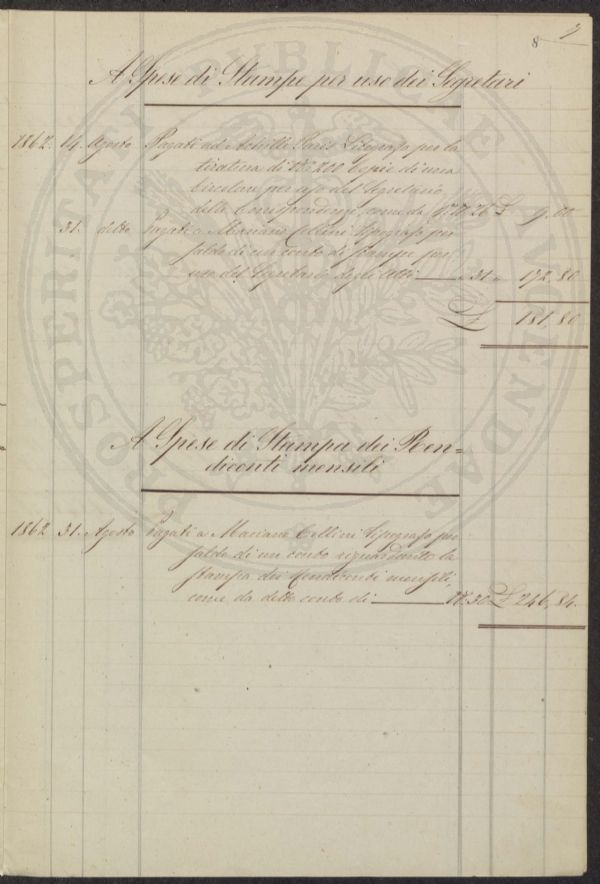 8 9
A Spese di Stampe per uso dei Segretari
1862. 14. Agosto Pagati ad Achille Paris Litografo per la
tiratura di No. 200 Copie di una
Circolare per uso del Segretario
delle Corrispondenze, come da No. 26 £ 9. 00
31. detto Pagati a Mariano Cellini tipografo per
saldo di un conto di stampe per
uso del Segretario degli Atti " 31 " 172. 80
£ 181. 80
A Spese di Stampa dei Ren=
diconti mensili
1862 31. Agosto Pagati a Mariano Cellini tipografo per
saldo di un conto riguardante la
stampa dei Rendiconti mensili,
come da detto conto di No. 30 £ 246. 84.
PROSPERITATI PUBLICAE AUGENDAE